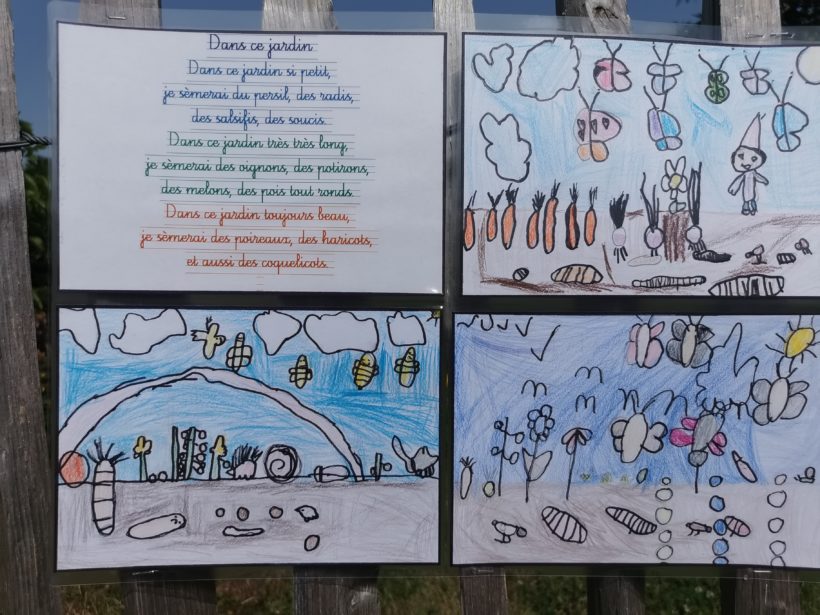 Dans ce jardin
Dans ce jardin si petit,
je sèmerai du persil, des radis,
des salsifis, des soucis.
Dans ce jardin très très long,
je sèmerai des oignons, des potirons,
des melons, des pois tout ronds.
Dans ce jardin toujours beau,
je sèmerai des poireaux, des haricots,
et aussi des coquelicots.